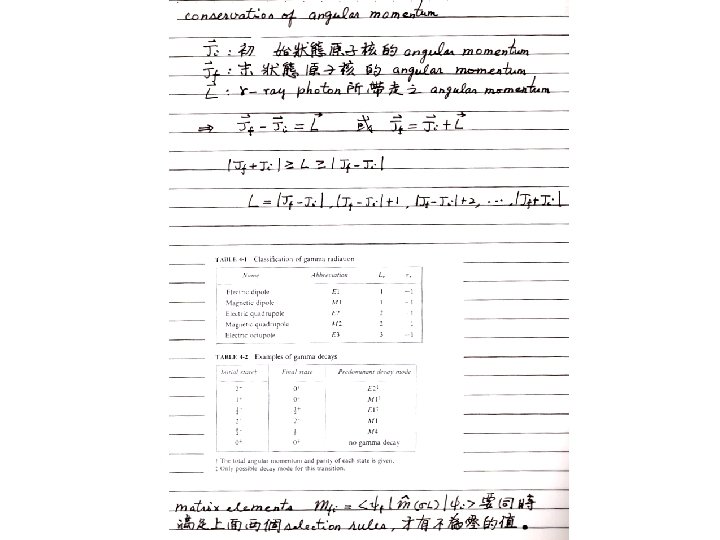 conservation of angular momentum
J⃗i : 初 始狀態原子核的 angular momentum
J⃗f : 末狀態原子核的 angular momentum
L⃗ : γ-ray photon 所帶走之 angular momentum
⇒ J⃗f - J⃗i = L⃗ 或 J⃗f = J⃗i + L⃗
|Jf + Ji| ≥ L ≥ |Jf - Ji|
L = |Jf - Ji|, |Jf - Ji| + 1, |Jf - Ji| + 2, ..., |Jf + Ji|
TABLE 4-1 Classification of gamma radiation
Name Abbreviation
Electric dipole E1 1 -1
Magnetic dipole M1 1
Electric quadrupole E2 2
Magnetic quadrupole M2 2
Electric octupole E3 3 -1
TABLE 4-2 Examples of gamma decays
Initial state† Final state Predominant decay mode
0+ E2‡
M1‡
E1‡
M1
M4
0+ 0+ no gamma decay
† The total angular momentum and parity of each state is given.
‡ Only possible decay mode for this transition.
matrix elements mfi = <ψf | m̂(σL) | ψi> 要同時
滿足上面兩個 selection rules, 才有不為零的值。